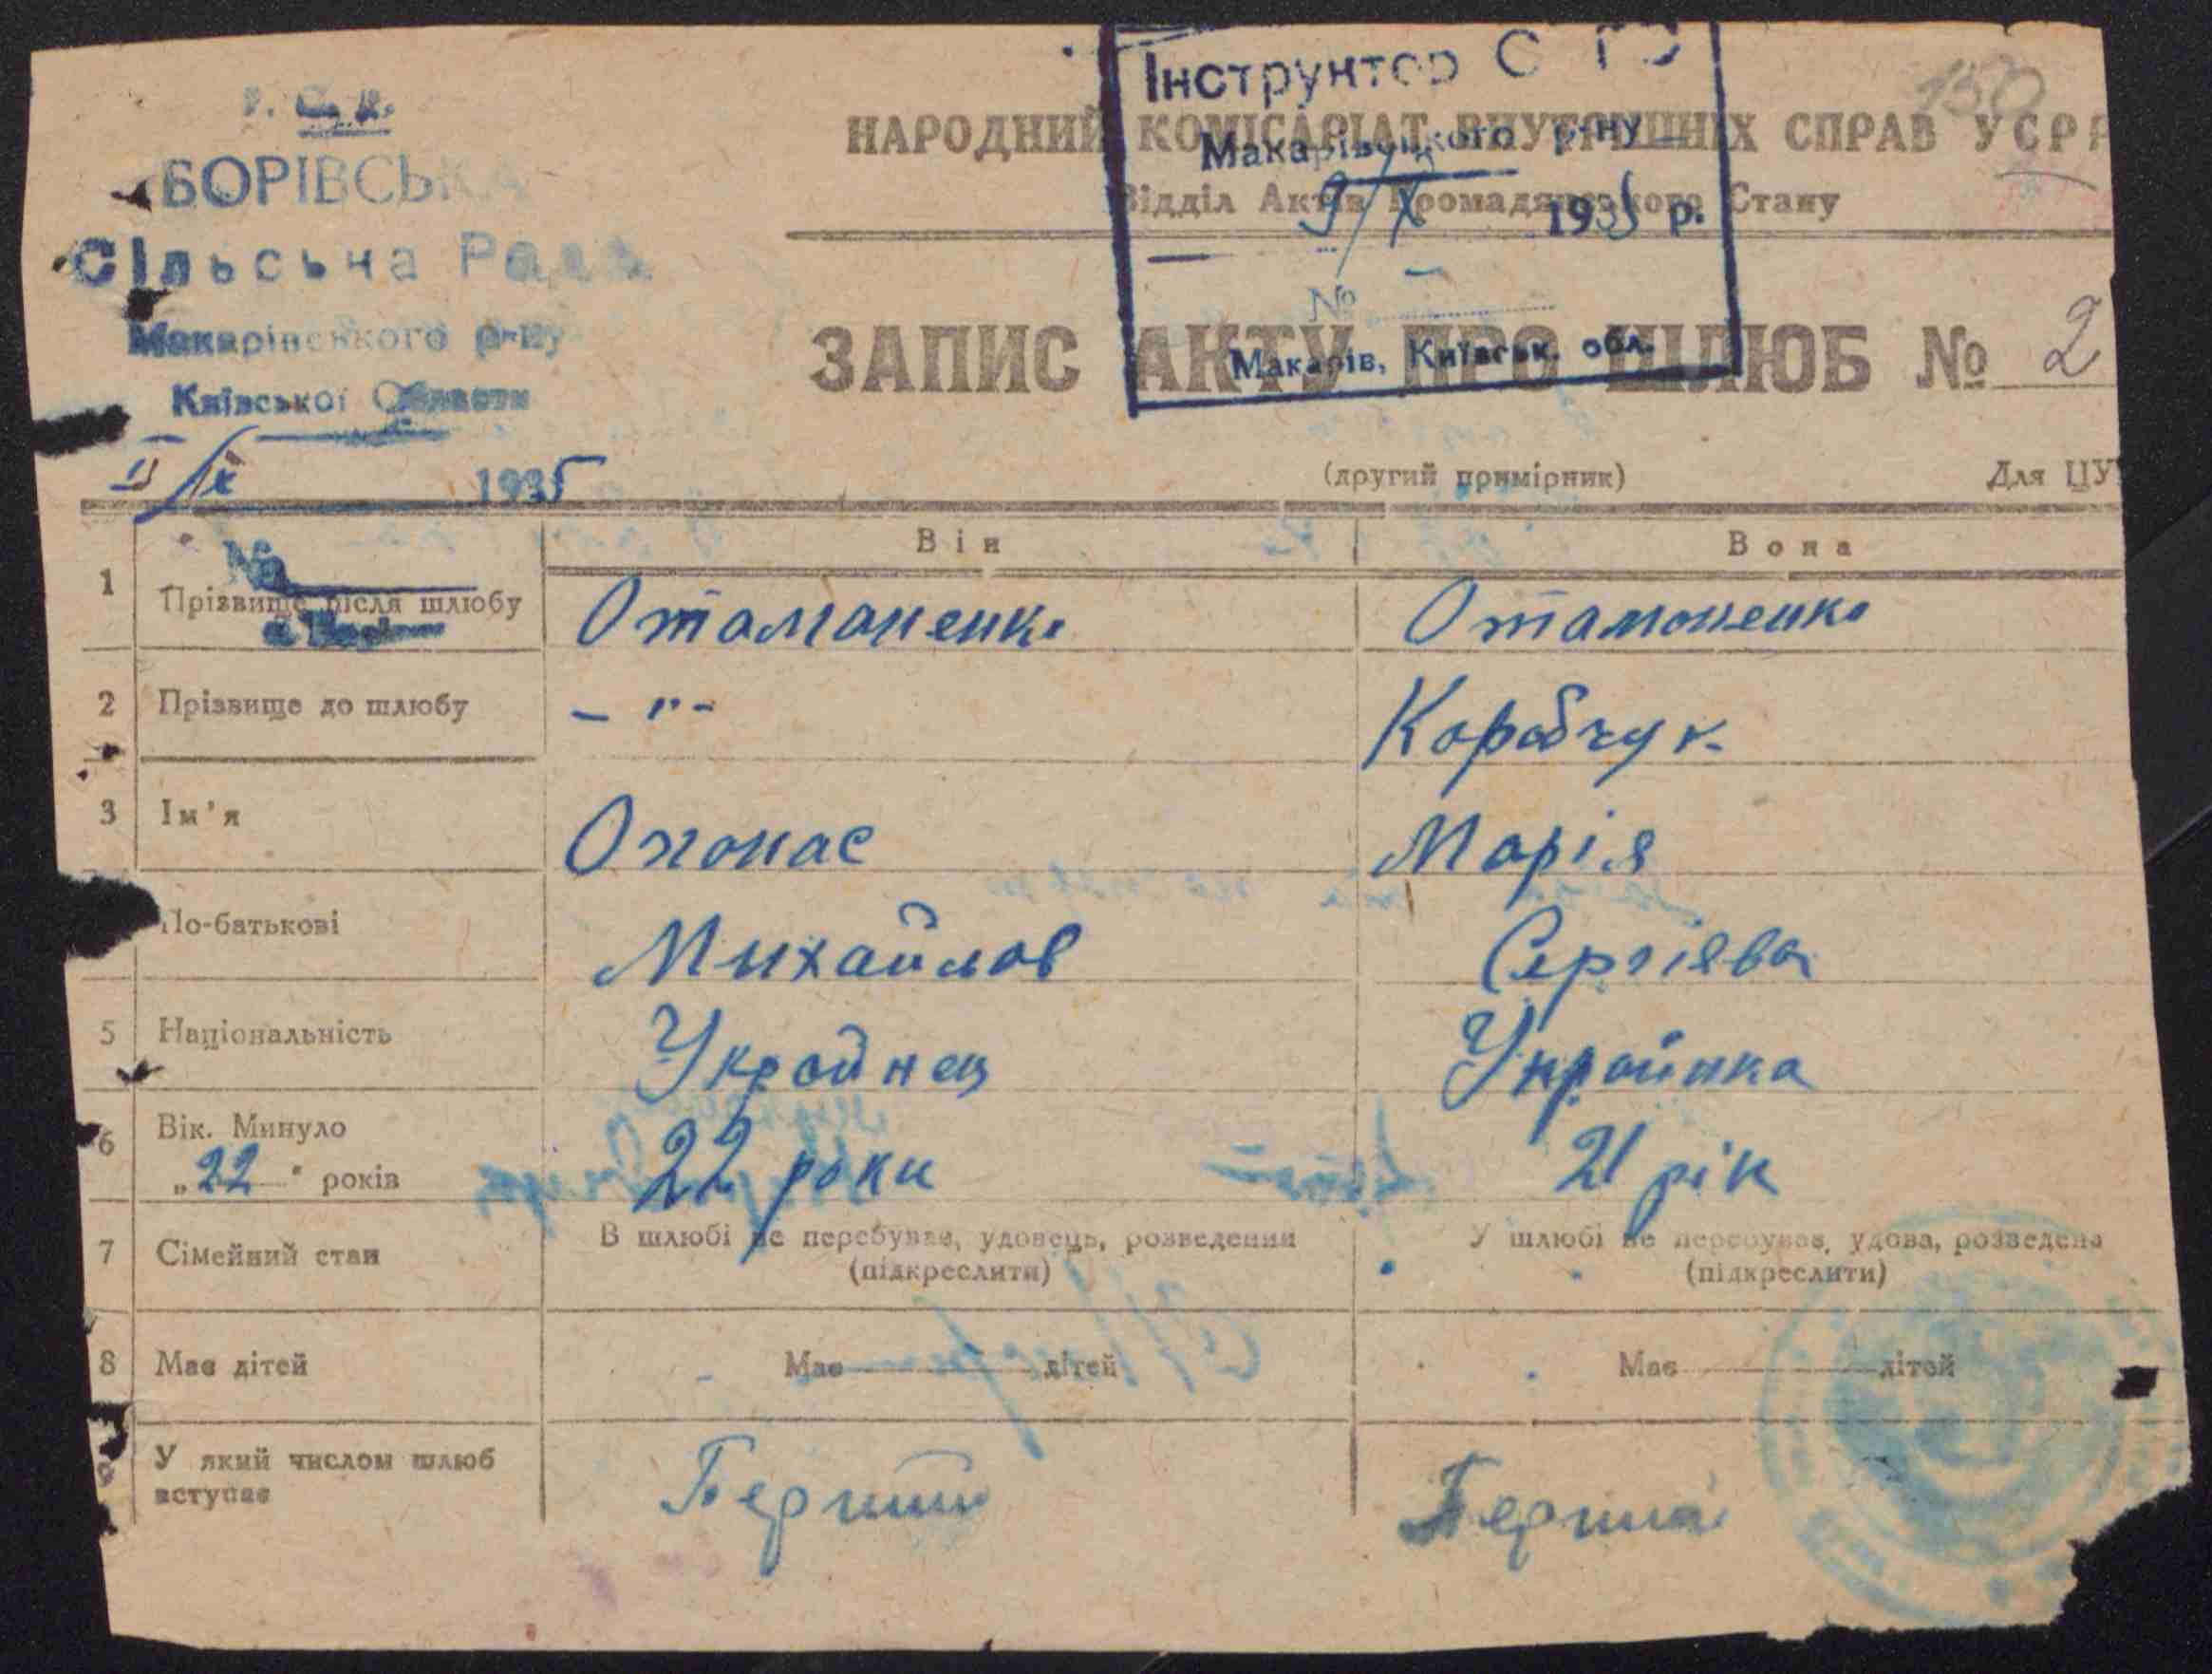 У. С. Р. Р.
БОРІВСЬКА
Сільська Рада
Макарівського р-ну
Київської Области
1935
№
Інструктор
Макарівського р-ну
9/X 1935 р.
№
Макарів, Київськ. обл.
150
НАРОДНИЙ КОМІСАРІАТ ВНУТРІШНІХ СПРАВ УСРР
Відділ Актів Громадянського Стану
ЗАПИС АКТУ ПРО ШЛЮБ № 2
(другий примірник) Для ЦУ
Він Вона
1 Прізвище після шлюбу Отаманенко Отаманенко
2 Прізвище до шлюбу – " – Коробчук
3 Ім'я Опонас Марія
По-батькові Михайлов Сергієва
5 Національність Украйнец Украйинка
6 Вік. Минуло
„22" років 22 роки 21 рік
7 Сімейний стан В шлюбі не перебував, удовець, розведений У шлюбі не перебував, удова, розведена
(підкреслити) (підкреслити)
8 Має дітей Має дітей Має дітей
9 У який числом шлюб Перший Перша
вступає